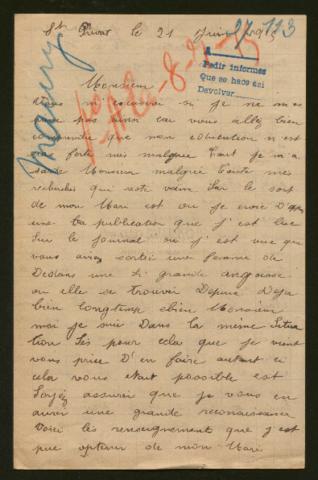 St Privat le 21 Juin 1915
27 113
Pedir informes
Que se hace así
Devolver
Monsieur
vous m'excuserez si je ne me
pas ainsi car vous allez bien
comprendre que mon est
forte mes malgree tout je m'a
Monsieur malgree toute mes
recherches qui reste vaine sur le sort
de mon Mari est ou je crois D'apres
une la publication que j'est lue
sur le journal ou j'est vue que
vous aviez sortie une femme de
Dedans une si grande angoisse
ou elle se trouvai Depuis Deja
bien longtemp ebien Monsieur
moi je suis Dans la meme Situa
tion s'és pour cela que je vient
vous priee D'en faire autant si
cela vous etait possible est
Soyéz assurér que je vous en
aurér une grande reconaissance
Voici les renseignement que j'est
pue optenir de mon Mari